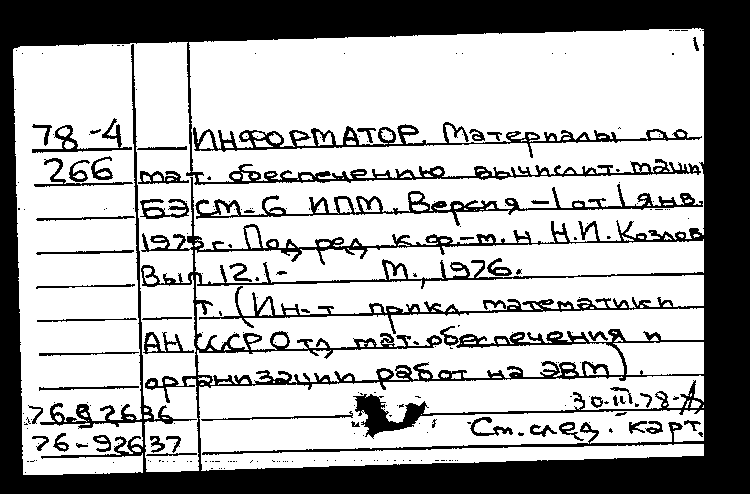 1
78-4 ИНФОРМАТОР. Материалы по
266 мат. обеспечению вычислит. машин
БЭСМ-6 ИПМ. Версия-1 от 1 янв.
1975 г. Под ред. к.ф.-м.н. Н.И. Козлов
Вып. 12.1- М., 1976.
т. (Ин-т прикл. математики
АН СССР Отд мат. обеспечения и
организации работ на ЭВМ).
76-92636 30.III.78-
76-92637 См. след. карт.